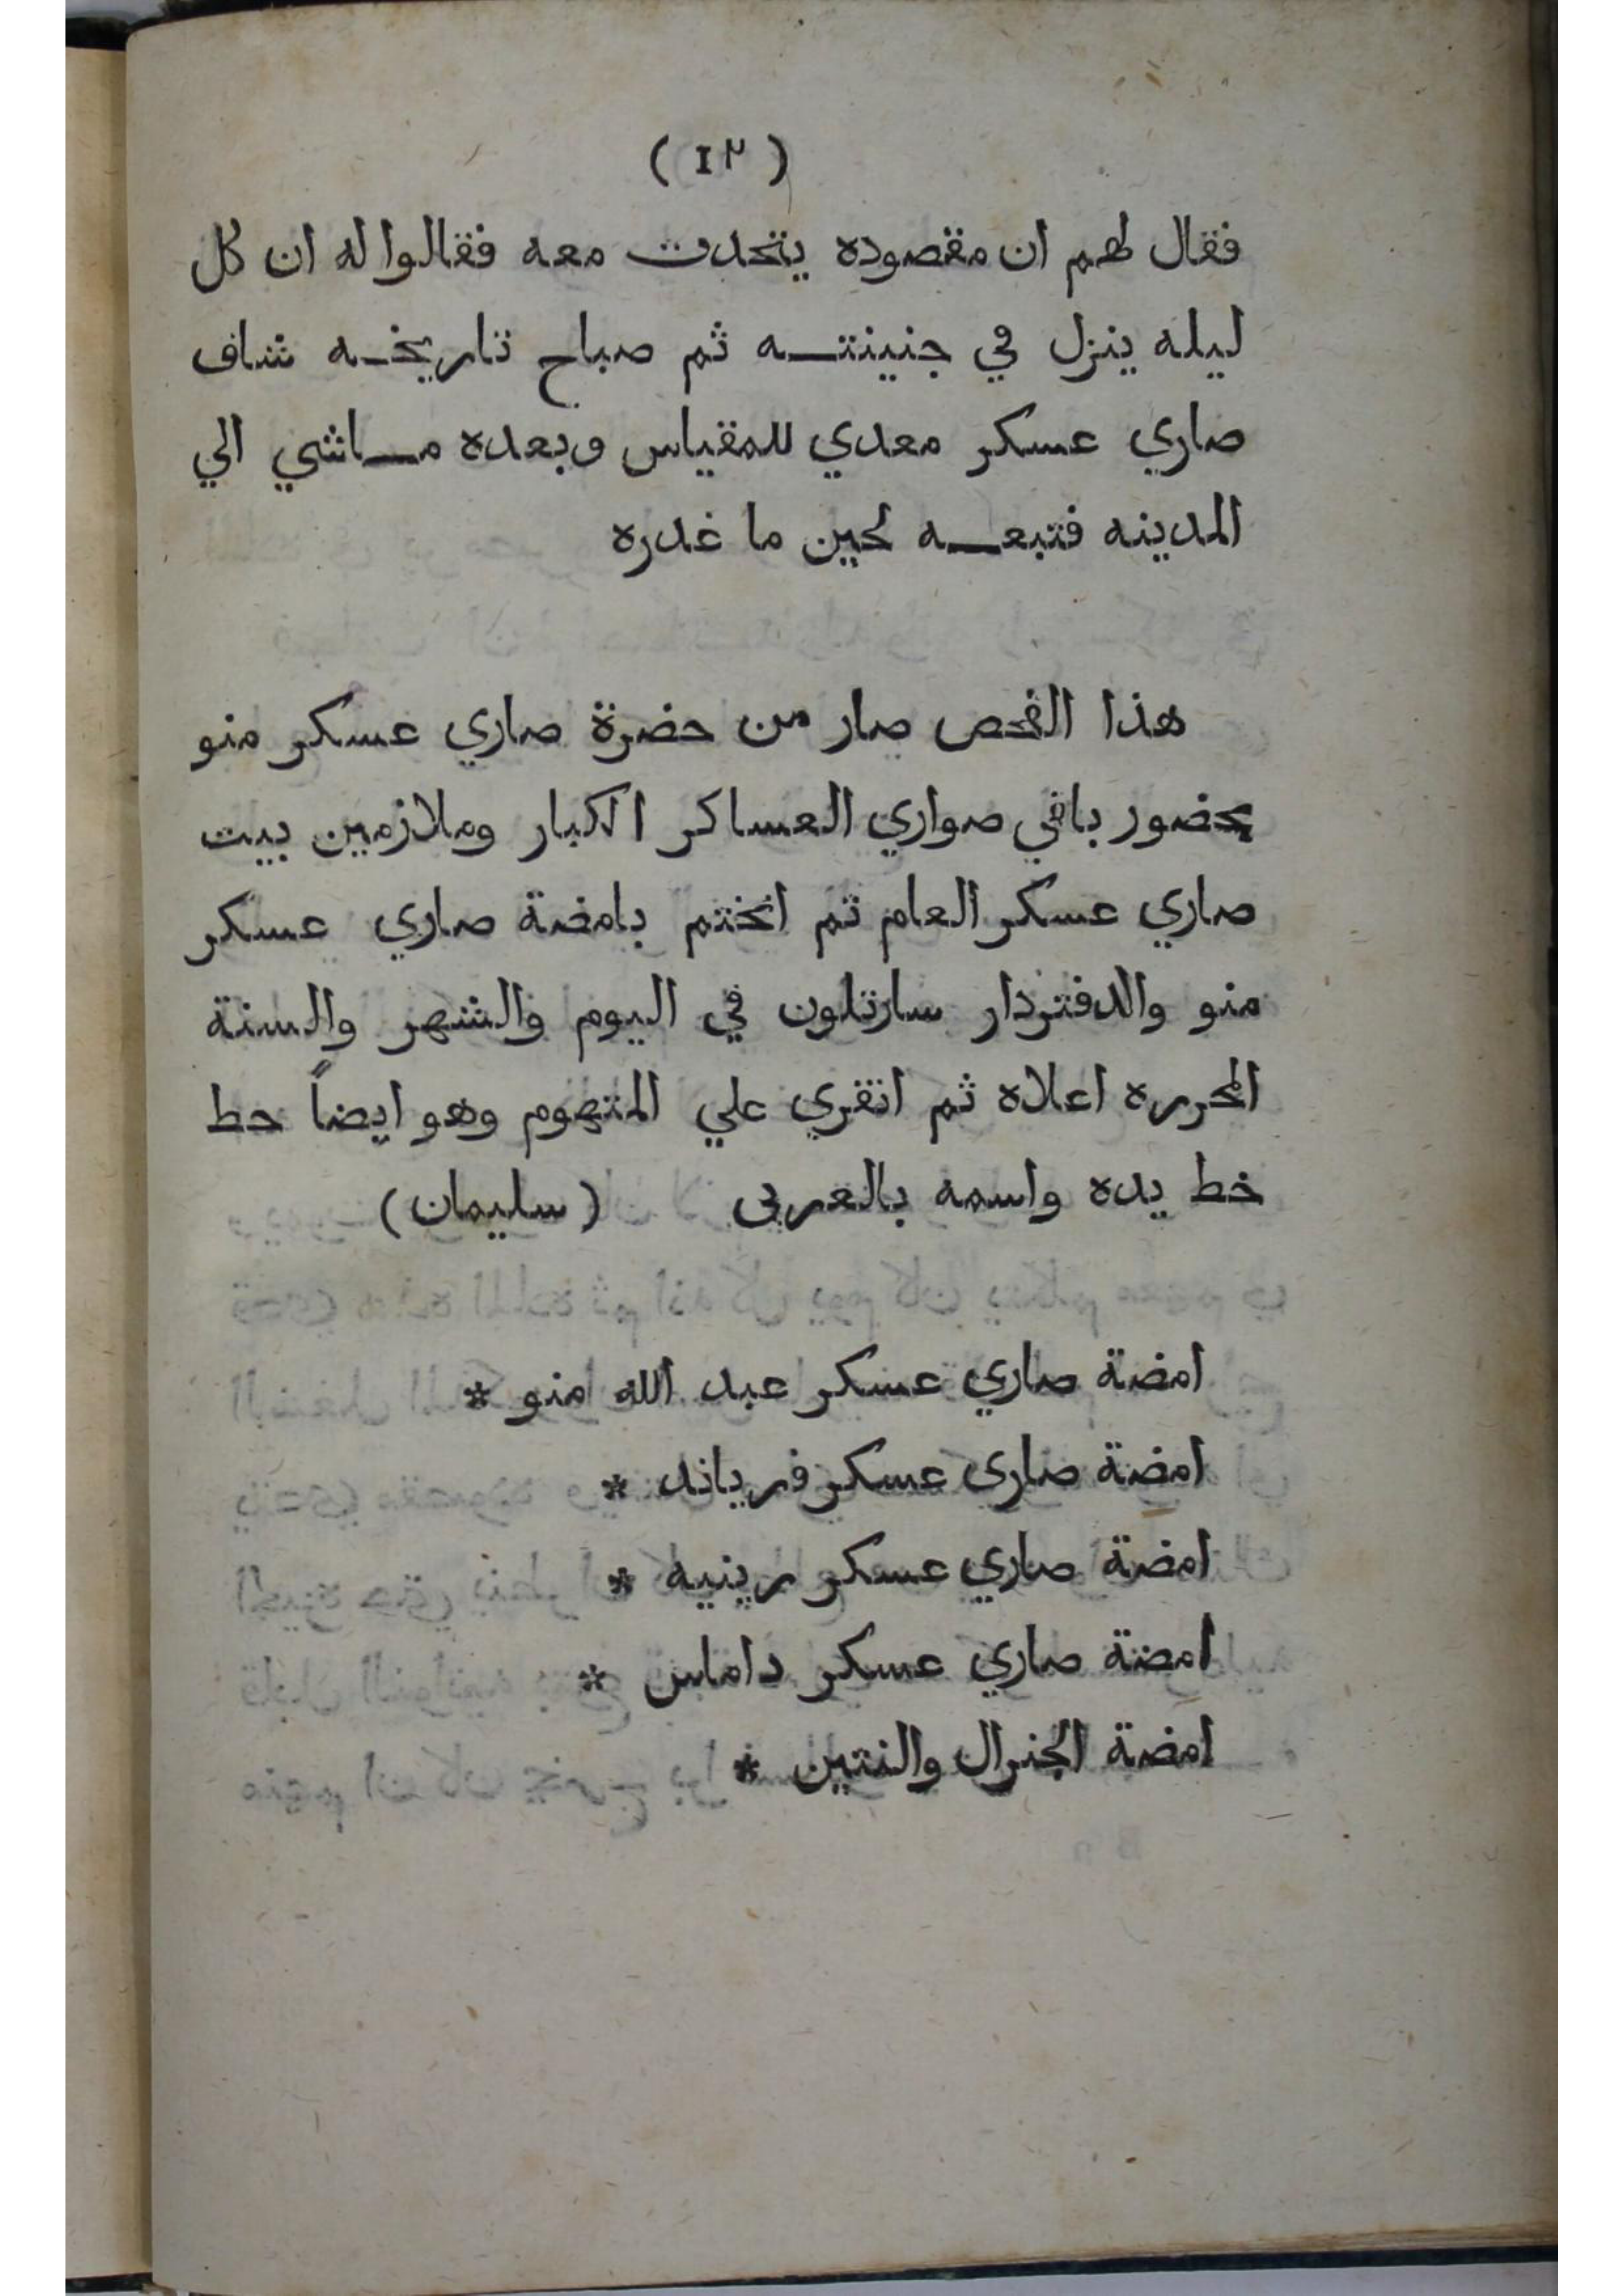 ( ١٢ )
فقال لهم ان مقصوده يتحدت معه فقالوا له ان كل
ليله ينزل في جنينته ثم صباح تاريخه شاف
صاري عسكر معدي للمقياس وبعده ماشي الي
المدينه فتبعه لحين ما غدره
هذا الفحص صار من حضرة صاري عسكر منو
بحضور باقي صواري العساكر الكبار وملازمين بيت
صاري عسكر العام ثم انختم بامضة صاري عسكر
منو والدفتردار سارتلون في اليوم والشهر والسنة
المحرره اعلاه ثم انقري علي المتهوم وهو ايضاً حط
خط يده واسمه بالعربى (سليمان)
امضة صاري عسكر عبد الله منو *
امضة صارى عسكر فرياند *
امضة صاري عسكر رينيه *
امضة صاري عسكر داماس *
امضة الجنرال والنتين *